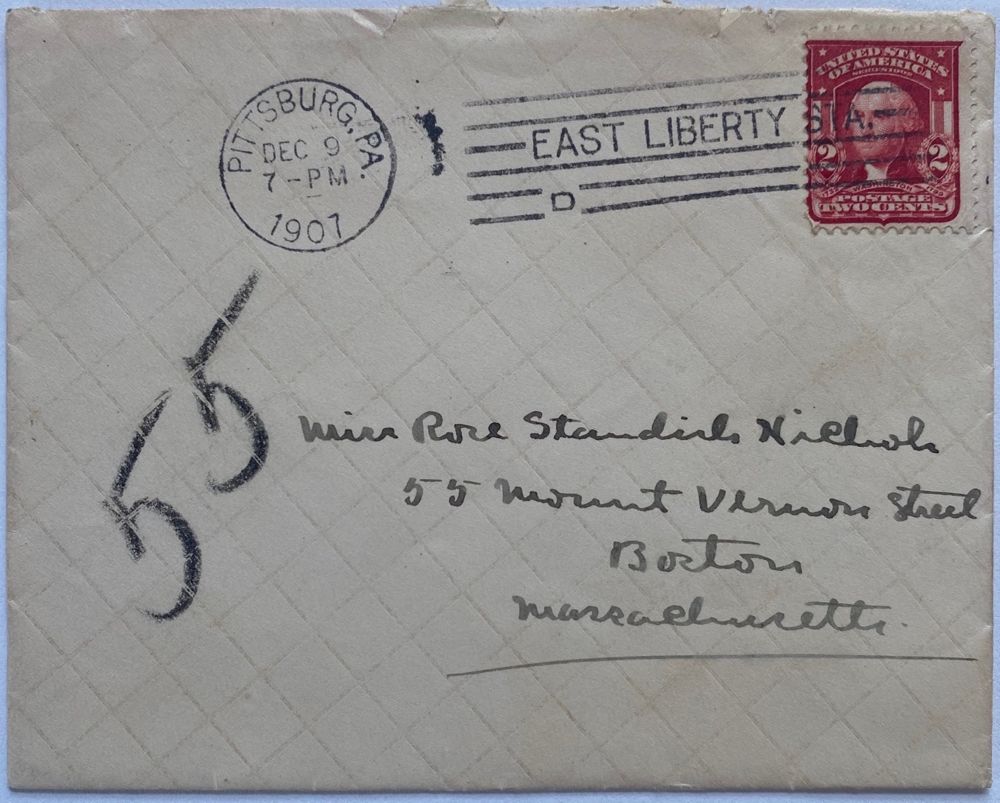 PITTSBURG, PA.
DEC 9
7-PM
1907
EAST LIBERTY STA.
D
UNITED STATES
OF AMERICA
SERIES 1902
2 2
WASHINGTON
POSTAGE
TWO CENTS
55
Miss Rose Standish Nichols
55 Mount Vernon Street
Boston
Massachusetts.